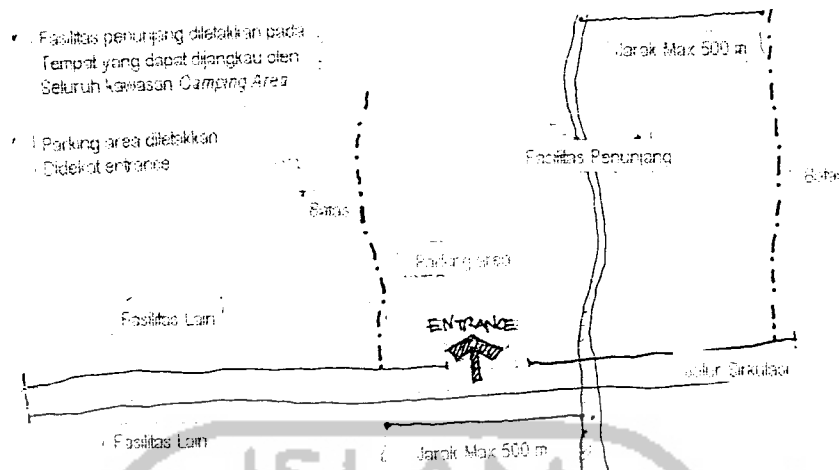 Fasilitas penunjang diletakkan pada
Tempat yang dapat dijangkau oleh
Seluruh kawasan Camping Area
Parking area diletakkan
Didekat entrance
Jarak Max 500 m
Fasilitas Penunjang
Batas
Batas
Parking area
Fasilitas Lain
ENTRANCE
Jalur Sirkulasi
Fasilitas Lain
Jarak Max 500 m
ISLAM